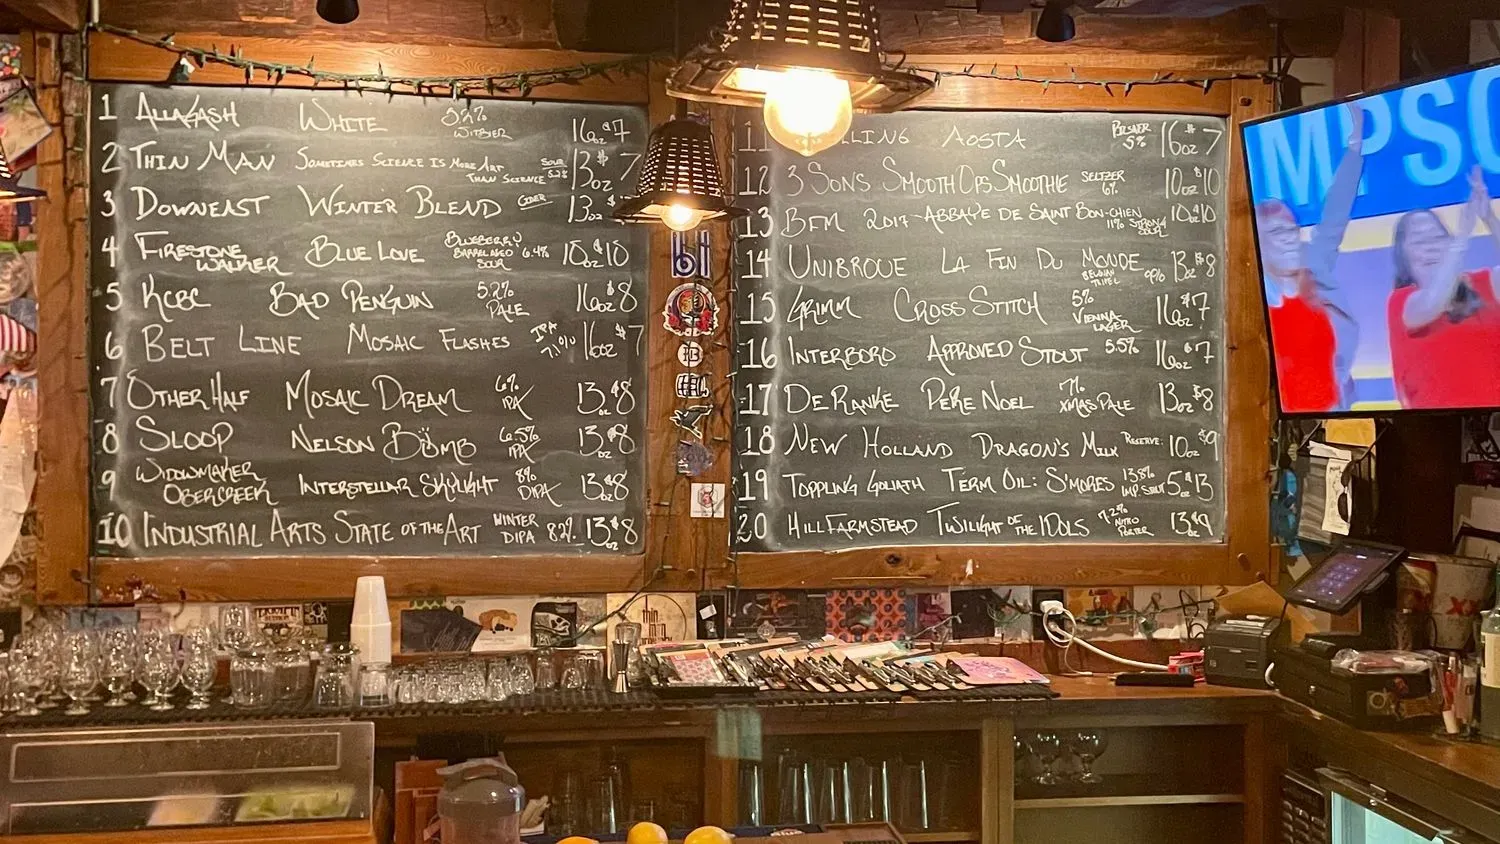 1 ALLAGASH WHITE 5.2% WITBIER 16oz $7
2 THIN MAN SOMETIMES SCIENCE IS MORE ART THAN SCIENCE SOUR 5.2% 13oz $7
3 DOWNEAST WINTER BLEND CIDER 13oz
4 FIRESTONE WALKER BLUE LOVE BLUEBERRY BARREL AGED SOUR 6.4% 10oz $10
5 KCBC BAD PENGUIN 5.2% PALE 16oz $8
6 BELT LINE MOSAIC FLASHES IPA 7.1% 16oz $7
7 OTHER HALF MOSAIC DREAM 6% IPA 13oz $8
8 SLOOP NELSON BÖMB 6.5% IPA 13oz $8
9 WIDOWMAKER OBERCREEK INTERSTELLAR SKYLIGHT 8% DIPA 13oz $8
10 INDUSTRIAL ARTS STATE OF THE ART WINTER DIPA 8.2% 13oz $8
11 LLING AOSTA PILSNER 5% 16oz $7
12 3 SONS SMOOTH OPS SMOOTHIE SELTZER 6% 10oz $10
13 BFM 2017 - ABBAYE DE SAINT BON-CHIEN 11% STRONG SOUR 10oz $10
14 UNIBROUE LA FIN DU MONDE BELGIAN TRIPEL 9% 13oz $8
15 GRIMM CROSS STITCH 5% VIENNA LAGER 16oz $7
16 INTERBORO APPROVED STOUT 5.5% 16oz $7
17 DE RANKE PERE NOEL 7% XMAS PALE 13oz $8
18 NEW HOLLAND DRAGON'S MILK RESERVE 10oz $9
19 TOPPLING GOLIATH TERM OIL: S'MORES 13.8% IMP. STOUT 5oz $13
20 HILL FARMSTEAD TWILIGHT OF THE IDOLS 7.2% NITRO PORTER 13oz $9
MPSO
bl
thin
man